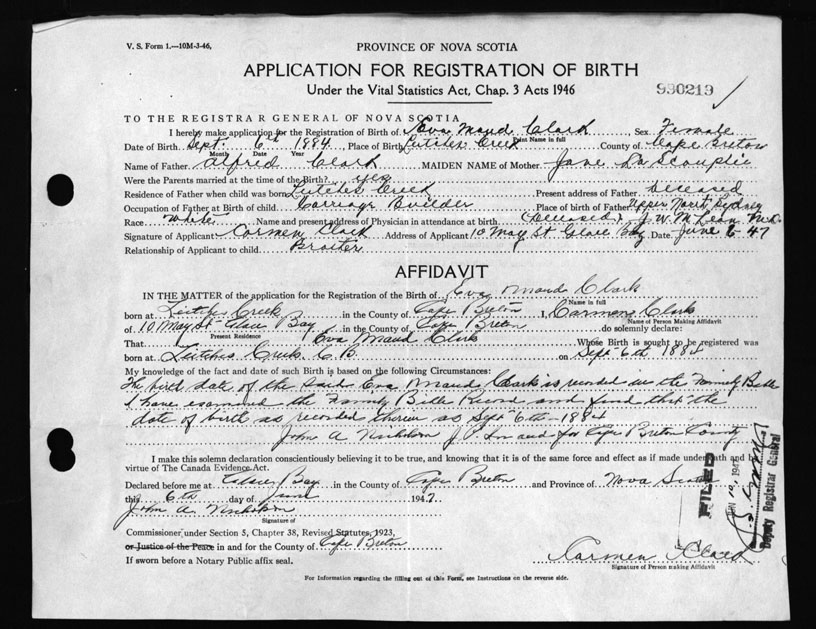 V. S. Form 1.—10M-3-46,
PROVINCE OF NOVA SCOTIA
APPLICATION FOR REGISTRATION OF BIRTH
Under the Vital Statistics Act, Chap. 3 Acts 1946
990219
TO THE REGISTRAR GENERAL OF NOVA SCOTIA
I hereby make application for the Registration of Birth of Eva Maud Clark, Sex Female
Print Name in full
Date of Birth Sept. 6th 1884, Place of Birth Leitches Creek County of Cape Breton
Month Date Year
Name of Father Alfred Clark MAIDEN NAME of Mother Jane
Were the Parents married at the time of the Birth? yes
Residence of Father when child was born Leitches Creek Present address of Father Deceased
Occupation of Father at Birth of child Carriage Builder Place of birth of Father Upper North Sydney
Race White Name and present address of Physician in attendance at birth (Deceased) J. W. McLean M.D.
Signature of Applicant Carmen Clark Address of Applicant 10 May St Glace Bay Date June 6-47
Relationship of Applicant to child Broiter
AFFIDAVIT
IN THE MATTER of the application for the Registration of the Birth of Eva Maud Clark
Name in full
born at Leitches Creek in the County of Cape Breton I, Carmen Clark
Name of Person Making Affidavit
of 10 May St Glace Bay in the County of Cape Breton do solemnly declare:
Present Residence
That Eva Maud Clark Whose Birth is sought to be registered was
born at Leitches Creek C.B. on Sept 6th 1884
My knowledge of the fact and date of such Birth is based on the following Circumstances:
The birth date of the said Eva Maud Clark is recorded in the Family Bible
I have examined the Family Bible Record and find that the
date of birth as recorded therein as Sept 6th—1884
John A Nicholson J.P. In and for Cape Breton County
I make this solemn declaration conscientiously believing it to be true, and knowing that it is of the same force and effect as if made under oath and by
virtue of The Canada Evidence Act.
Declared before me at Glace Bay in the County of Cape Breton and Province of Nova Scotia
this 6th day of June 1947.
John A. Nicholson
Signature of
Commissioner under Section 5, Chapter 38, Revised Statutes, 1923,
or Justice of the Peace in and for the County of Cape Breton
If sworn before a Notary Public affix seal.
Carmen Clark
Signature of Person making Affidavit
For Information regarding the filling out of this Form, see Instructions on the reverse side.
FILED
Deputy Registrar General